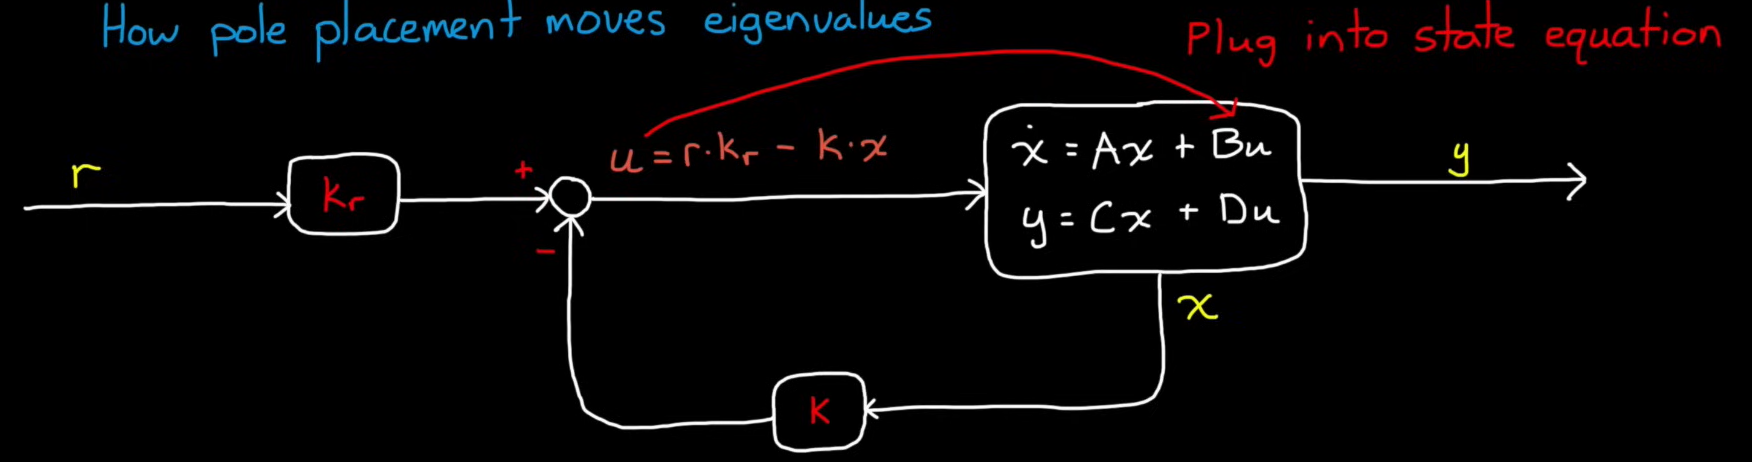 How pole placement moves eigenvalues
Plug into state equation
r
kr
+
-
u = r·kr - k·x
ẋ = Ax + Bu
y = Cx + Du
y
x
K